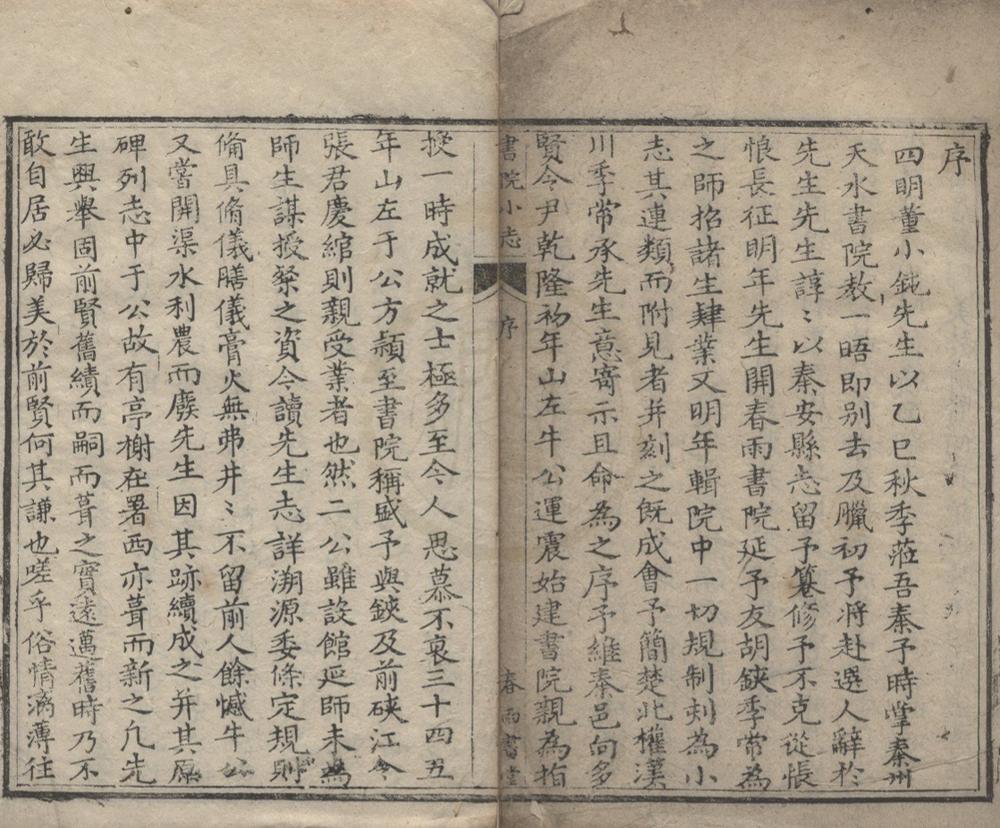 序
四明董小鈍先生以乙巳秋季蒞吾秦予時掌秦州
天水書院教一晤即別去及臘初予將赴選人辭於
先生先生諄〻以秦安縣志留予篡修予不克從悵
悵長征明年先生開春雨書院延予友胡鋏季常為
之師招諸生肄業又明年輯院中一切規制刻為小
志其連類而附見者并刻之既成會予簡楚北權漢
川季常承先生意寄示且命為之序予維秦邑向多
賢令尹乾隆初年山左牛公運震始建書院親為指
書院小志
序
春雨書堂
授一時成就之士極多至今人思慕不衰三十四五
年山左于公方頴至書院稱盛予與鋏及前硤江令
張君慶綰則親受業者也然二公雖設館延師未為
師生謀授粲之資今讀先生志詳溯源委條定規則
備具脩儀膳儀膏火無弗井〻不留前人餘憾牛公
又嘗開渠水利農而廢先生因其跡續成之并其原
碑列志中于公故有亭榭在署西亦葺而新之凡先
生興舉固前賢舊績而嗣而葺之實遠邁舊時乃不
敢自居必歸美於前賢何其謙也嗟乎俗情漓薄往